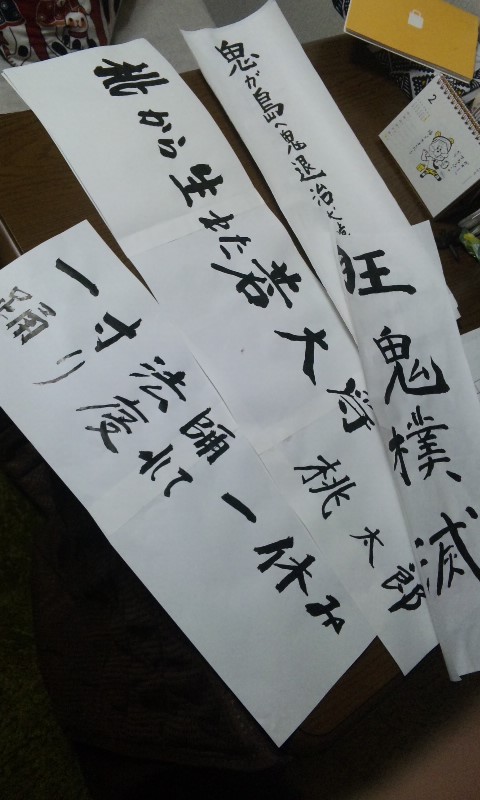 狂鬼撲滅
鬼が島へ鬼退治
桃から生れた若大将 桃太郎
一寸法師 一休み
踊り疲れて
2